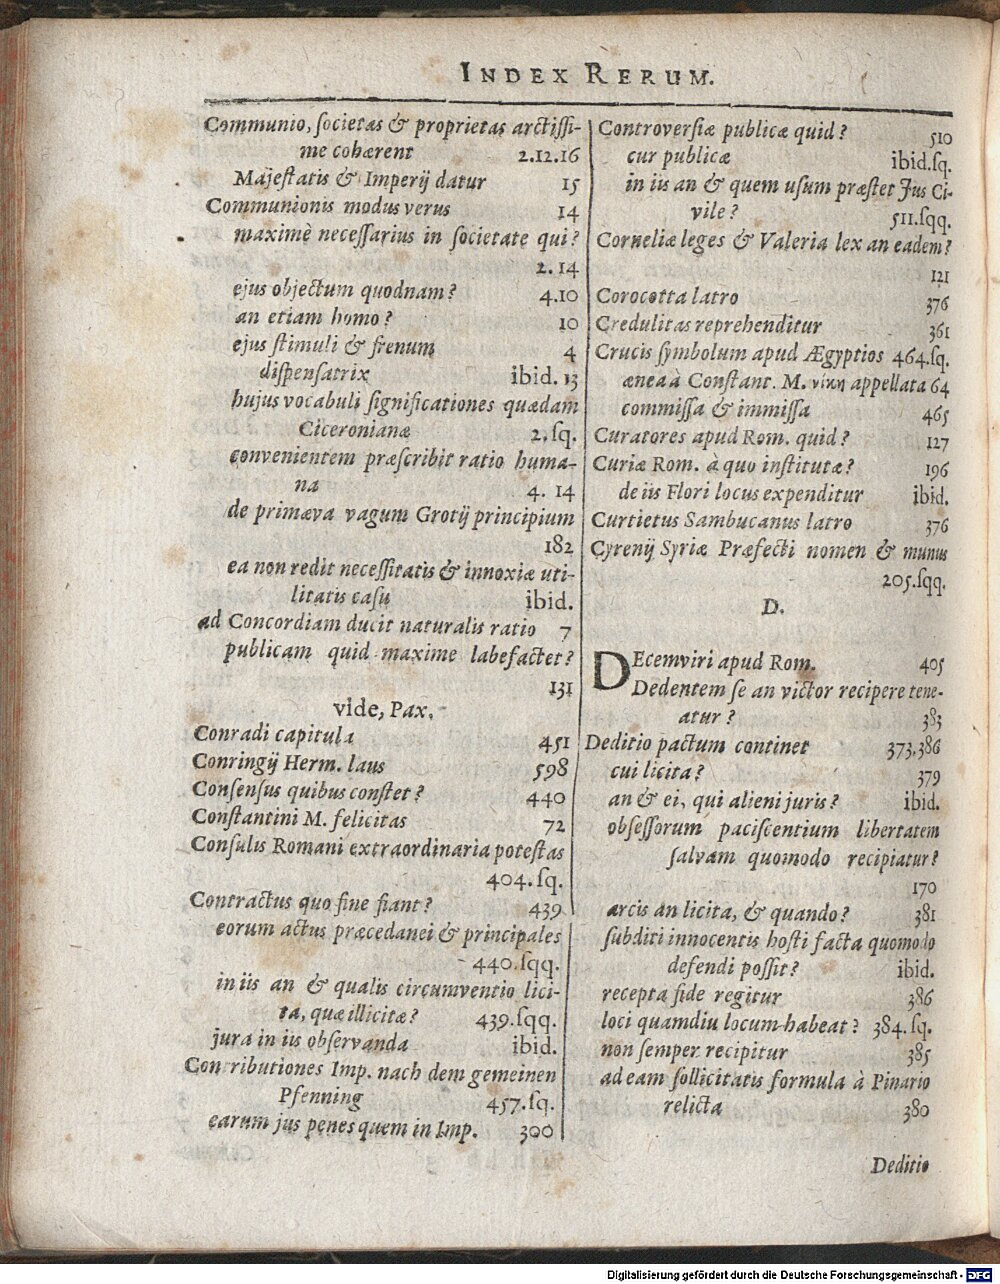 INDEX RERUM.
Communio, ſocietas & proprietas arctiſſi-
me cohærent 2.12.16
Majeſtatis & Imperij datur 15
Communionis modus verus 14
maximè neceſſarius in ſocietate qui?
2. 14
ejus objectum quodnam? 4.10
an etiam homo? 10
ejus ſtimuli & frenum 4
diſpenſatrix ibid. 13
hujus vocabuli ſignificationes quædam
Ciceronianæ 2.ſq.
convenientem præſcribit ratio huma-
na 4. 14
de primæva vagum Grotij principium
182
ea non redit neceſſitatis & innoxiæ uti-
litatis caſu ibid.
ad Concordiam ducit naturalis ratio 7
publicam quid maxime labefactet?
131
vide, Pax.
Conradi capitula 451
Conringij Herm. laus 598
Conſenſus quibus conſtet? 440
Conſtantini M. felicitas 72
Conſulis Romani extraordinaria poteſtas
404.ſq.
Contractus quo fine fiant? 439
eorum actus præcedanei & principales
440.ſqq.
in iis an & qualis circumventio lici-
ta, quæ illicitæ? 439.ſqq.
jura in iis obſervanda ibid.
Contributiones Imp. nach dem gemeinen
Pfenning 457.ſq.
earum jus penes quem in Imp. 300
Controverſiæ publicæ quid? 510
cur publicæ ibid.ſq.
in iis an & quem uſum præſtet Jus Ci-
vile? 511.ſqq.
Corneliæ leges & Valeria lex an eadem?
121
Corocotta latro 376
Credulitas reprehenditur 361
Crucis ſymbolum apud Ægyptios 464.ſq.
ænea à Conſtant. M. νίκη appellata 64
commiſſa & immiſſa 465
Curatores apud Rom. quid? 127
Curiæ Rom. à quo inſtitutæ? 196
de iis Flori locus expenditur ibid.
Curtietus Sambucanus latro 376
Cyrenij Syriæ Præfecti nomen & munus
205.ſqq.
D.
DEcemviri apud Rom. 405
Dedentem ſe an victor recipere tene-
atur? 383
Deditio pactum continet 373.386
cui licita? 379
an & ei, qui alieni juris? ibid.
obſeſſorum paciſcentium libertatem
ſalvam quomodo recipiatur?
170
arcis an licita, & quando? 381
ſubditi innocentis hoſti facta quomodo
defendi poſſit? ibid.
recepta fide regitur 386
loci quamdiu locum habeat? 384.ſq.
non ſemper recipitur 385
ad eam ſollicitatis formula à Pinario
relicta 380
Deditio
Digitalisierung gefördert durch die Deutsche Forschungsgemeinschaft - DFG